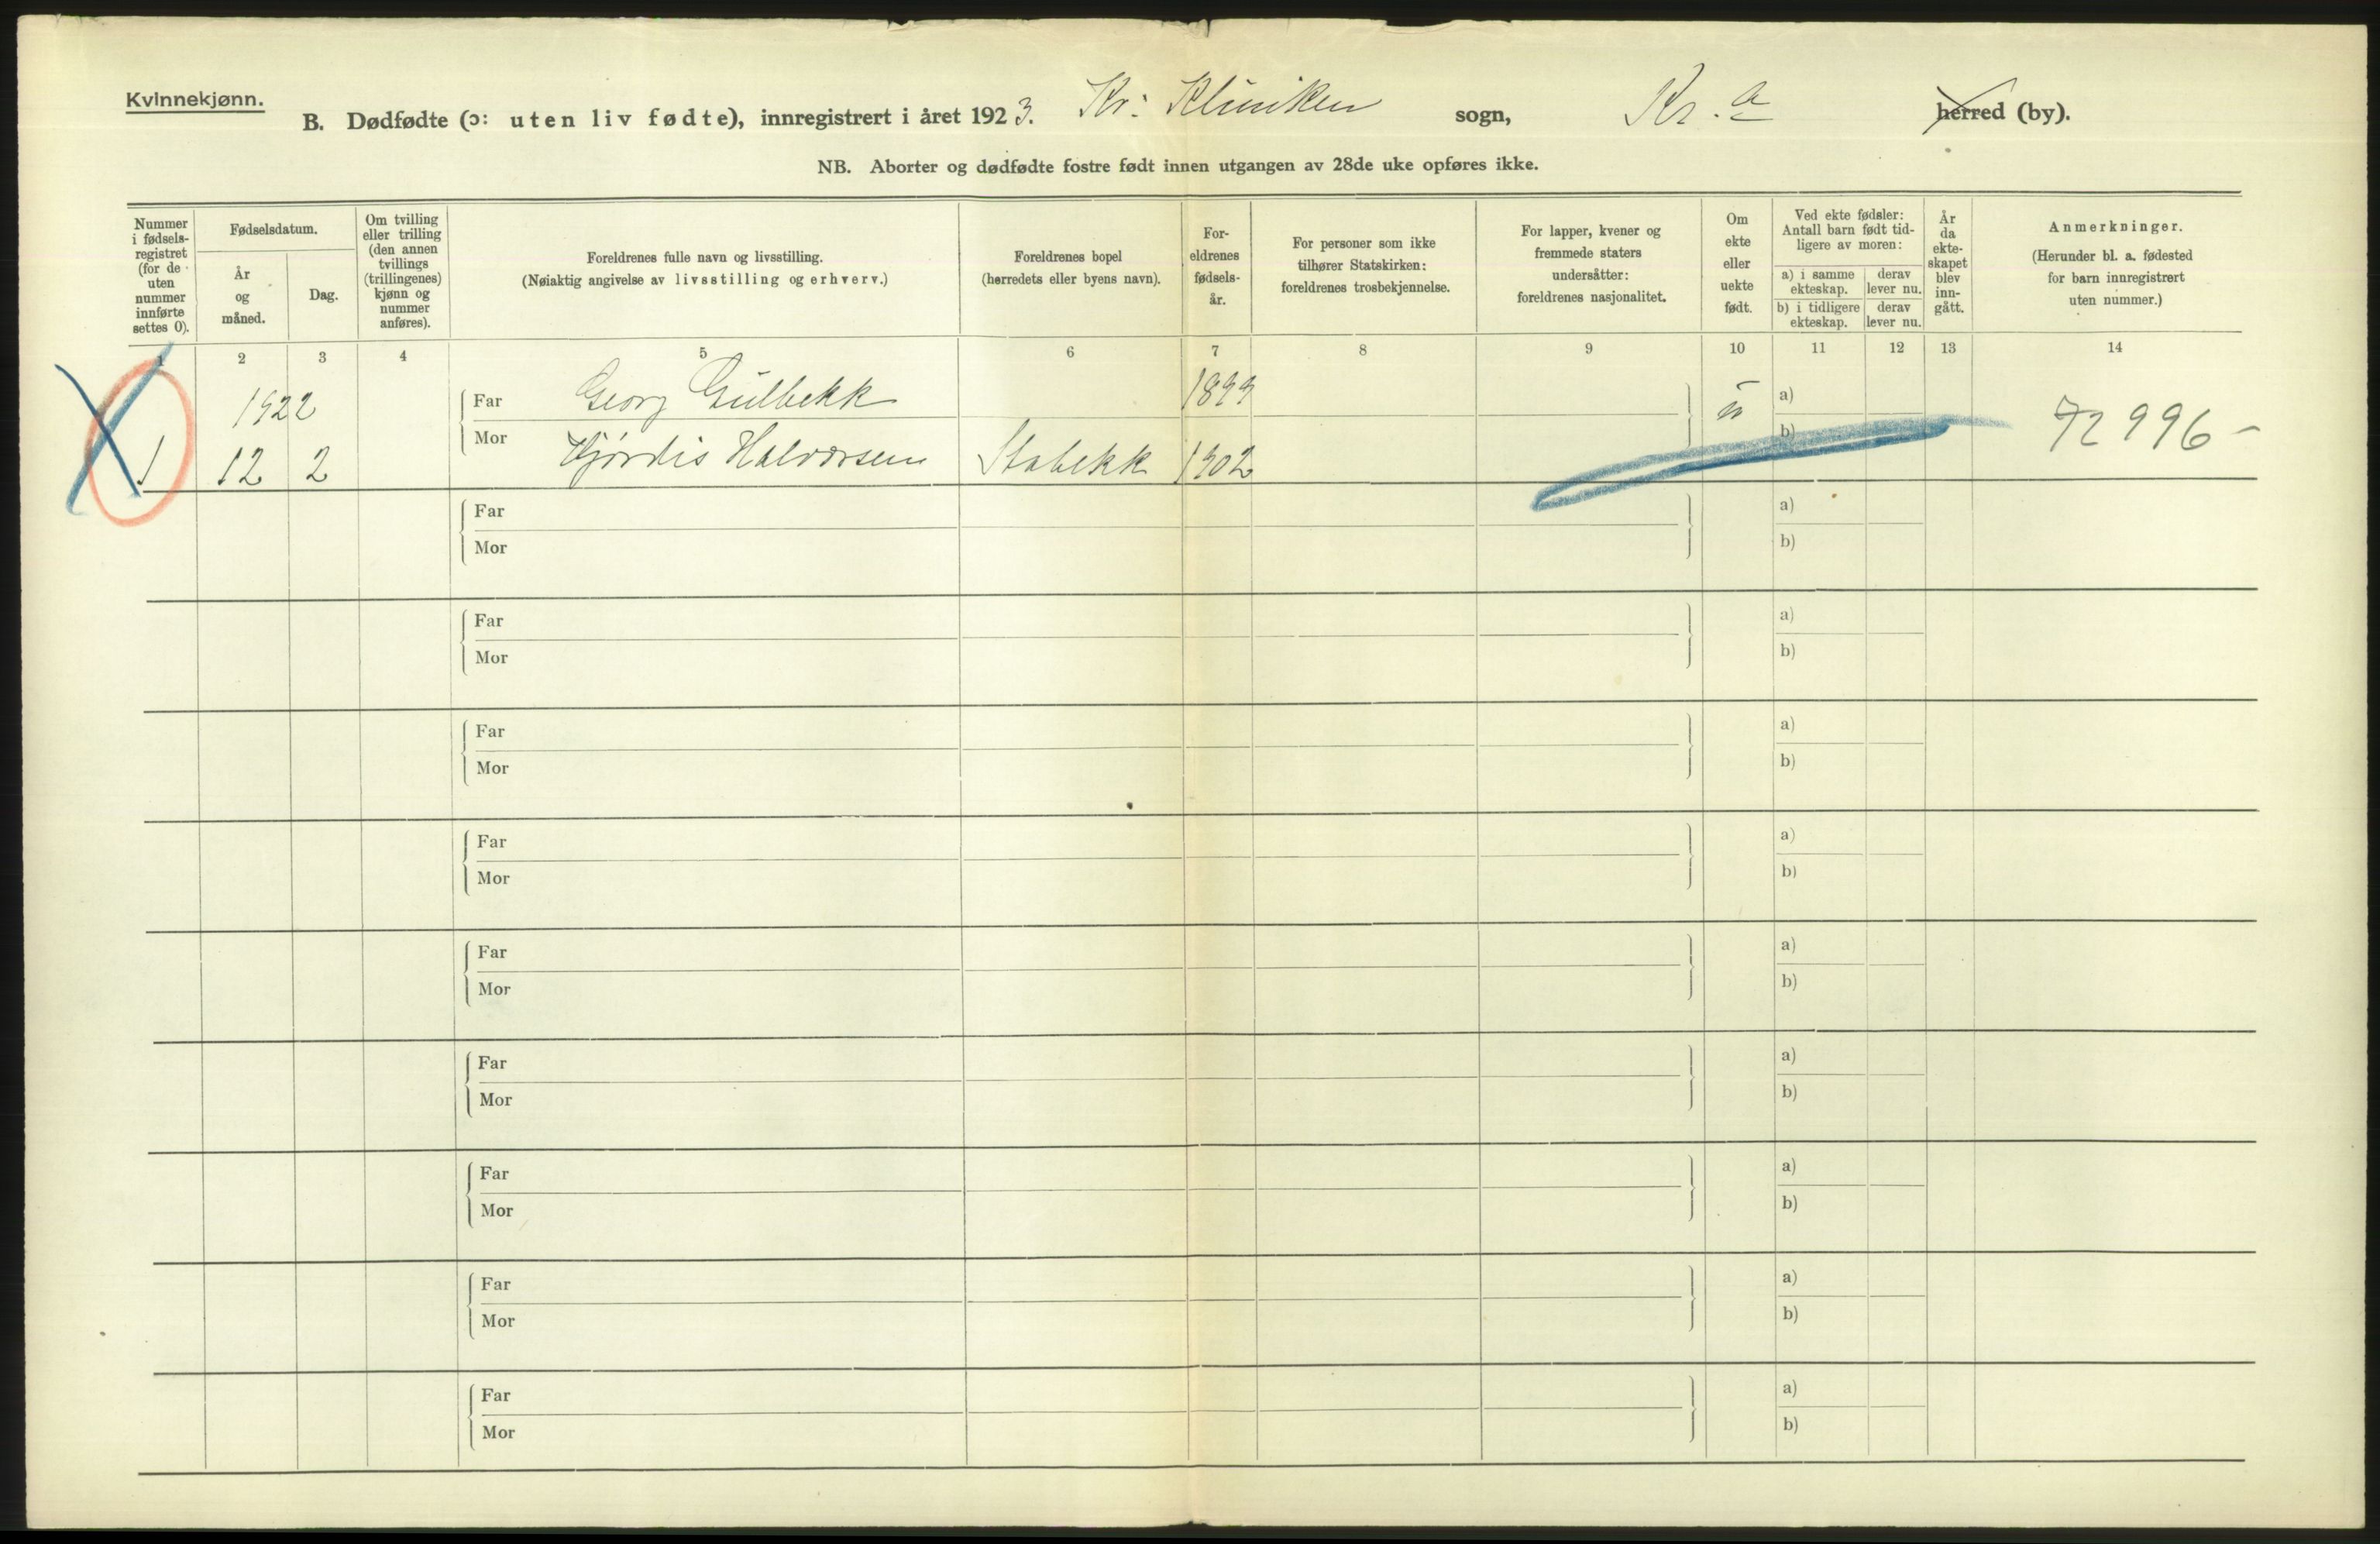 Kvinnekjønn.
B. Dødfødte (ɔ: uten liv fødte), innregistrert i året 1923. Kr. Kliniken sogn, Kr.a herred (by).
NB. Aborter og dødfødte fostre født innen utgangen av 28de uke opføres ikke.
Nummer i fødsels-registret (for de uten nummer innførte settes 0).
Fødselsdatum.
År og måned.
Dag.
Om tvilling eller trilling (den annen tvillings (trillingenes) kjønn og nummer anføres).
Foreldrenes fulle navn og livsstilling.
(Nøiaktig angivelse av livsstilling og erhverv.)
Foreldrenes bopel
(herredets eller byens navn).
For-eldrenes fødsels-år.
For personer som ikke tilhører Statskirken: foreldrenes trosbekjennelse.
For lapper, kvener og fremmede staters undersåtter: foreldrenes nasjonalitet.
Om ekte eller uekte født.
Ved ekte fødsler: Antall barn født tid-ligere av moren:
a) i samme ekteskap.
derav lever nu.
b) i tidligere ekteskap.
derav lever nu.
År da ekte-skapet blev inn-gått.
Anmerkninger.
(Herunder bl. a. fødested for barn innregistrert uten nummer.)
1 2 3 4 5 6 7 8 9 10 11 12 13 14
1922 Far Georg Gulbekk 1899 u a)
1 12 2 Mor Hjördis Halvorsen Stabekk 1902 b) 72996 –
Far a)
Mor b)
Far a)
Mor b)
Far a)
Mor b)
Far a)
Mor b)
Far a)
Mor b)
Far a)
Mor b)
Far a)
Mor b)
Far a)
Mor b)
Far a)
Mor b)